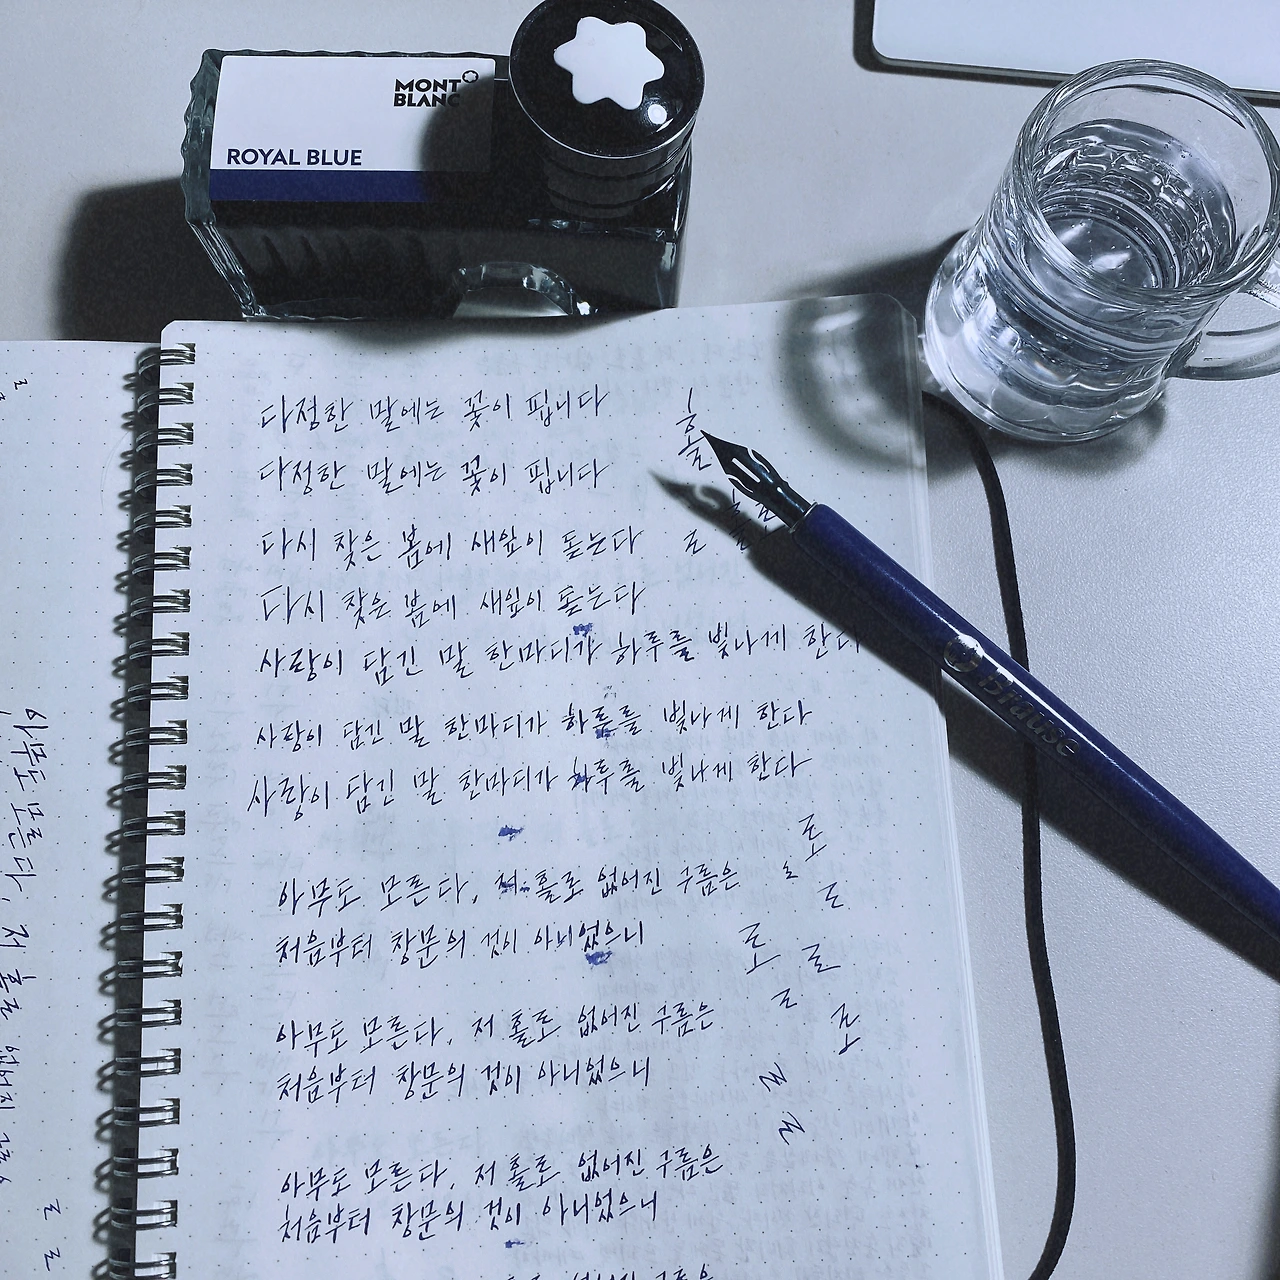 MONT
BLANC
ROYAL BLUE
다정한 말에는 꽃이 핍니다
홀
다정한 말에는 꽃이 핍니다
다시 찾은 봄에 새잎이 돋는다
ㄹ
다시 찾은 봄에 새잎이 돋는다
사랑이 담긴 말 한마디가 하루를 빛나게 한다
Brause
사랑이 담긴 말 한마디가 하루를 빛나게 한다
사랑이 담긴 말 한마디가 하루를 빛나게 한다
로
아무도 모른다, 저 홀로 없어진 구름은
ㄹ
ㄹ
처음부터 창문의 것이 아니었으니
로
ㄹ
ㄹ
아무도 모른다, 저 홀로 없어진 구름은
로
처음부터 창문의 것이 아니었으니
ㄹ
ㄹ
아무도 모른다, 저 홀로 없어진 구름은
처음부터 창문의 것이 아니었으니
아무도 모른다, 저 홀로 없어진 구름
ㄹ
ㄹ